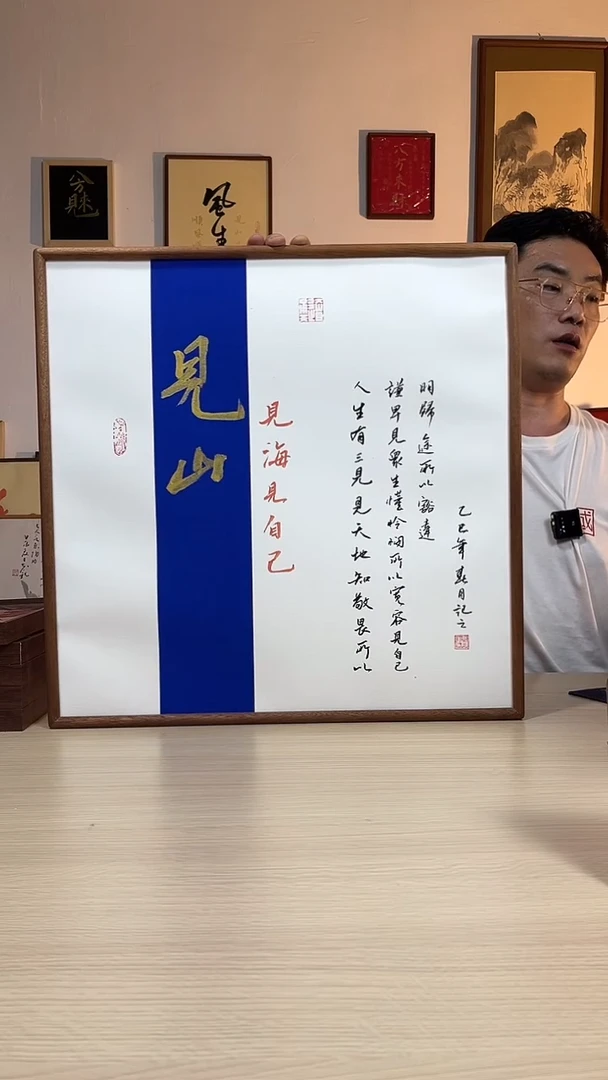 見山
見海見自己
人生有三見見天地知敬畏所以
謹卑見衆生懂怜憫所以寬容見自己
明歸途所以豁達
乙巳年月記之
風生
八方来财